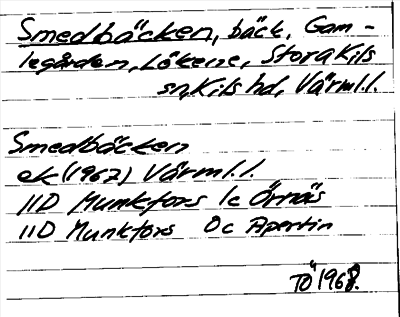 Smedbäcken, bäck, Gam-
legården, Lökene, Stora Kils
sn, Kils hd, Värml. l.
Smedbäcken
ek (1967) Värml. l.
11D Munkfors 1c Örnäs
11D Munkfors 0c Apertin
TÖ 1968.